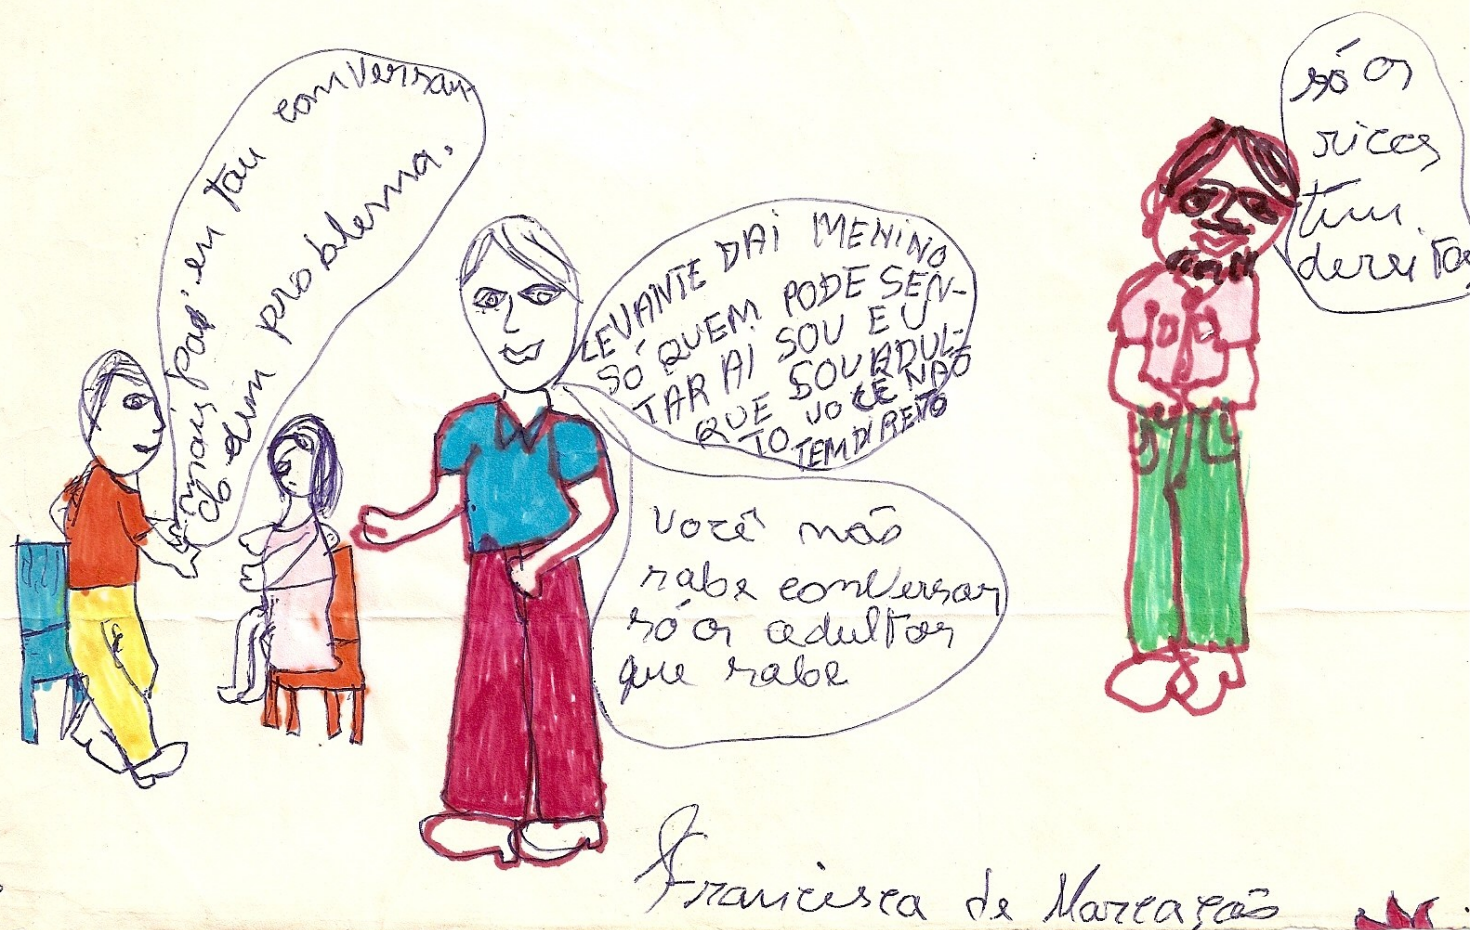 mais pap' eu tau conversan
do dum problema.
LEVANTE DAí MENINO
SÓ QUEM PODE SEN-
TAR AÍ SOU EU
QUE SOU ADUL-
TO VOCÊ NAO
TEM DIREITO
você não
sabe conversar
só os adultos
que sabe
só os
ricos
tem
dereitos
Francisca de Marcação